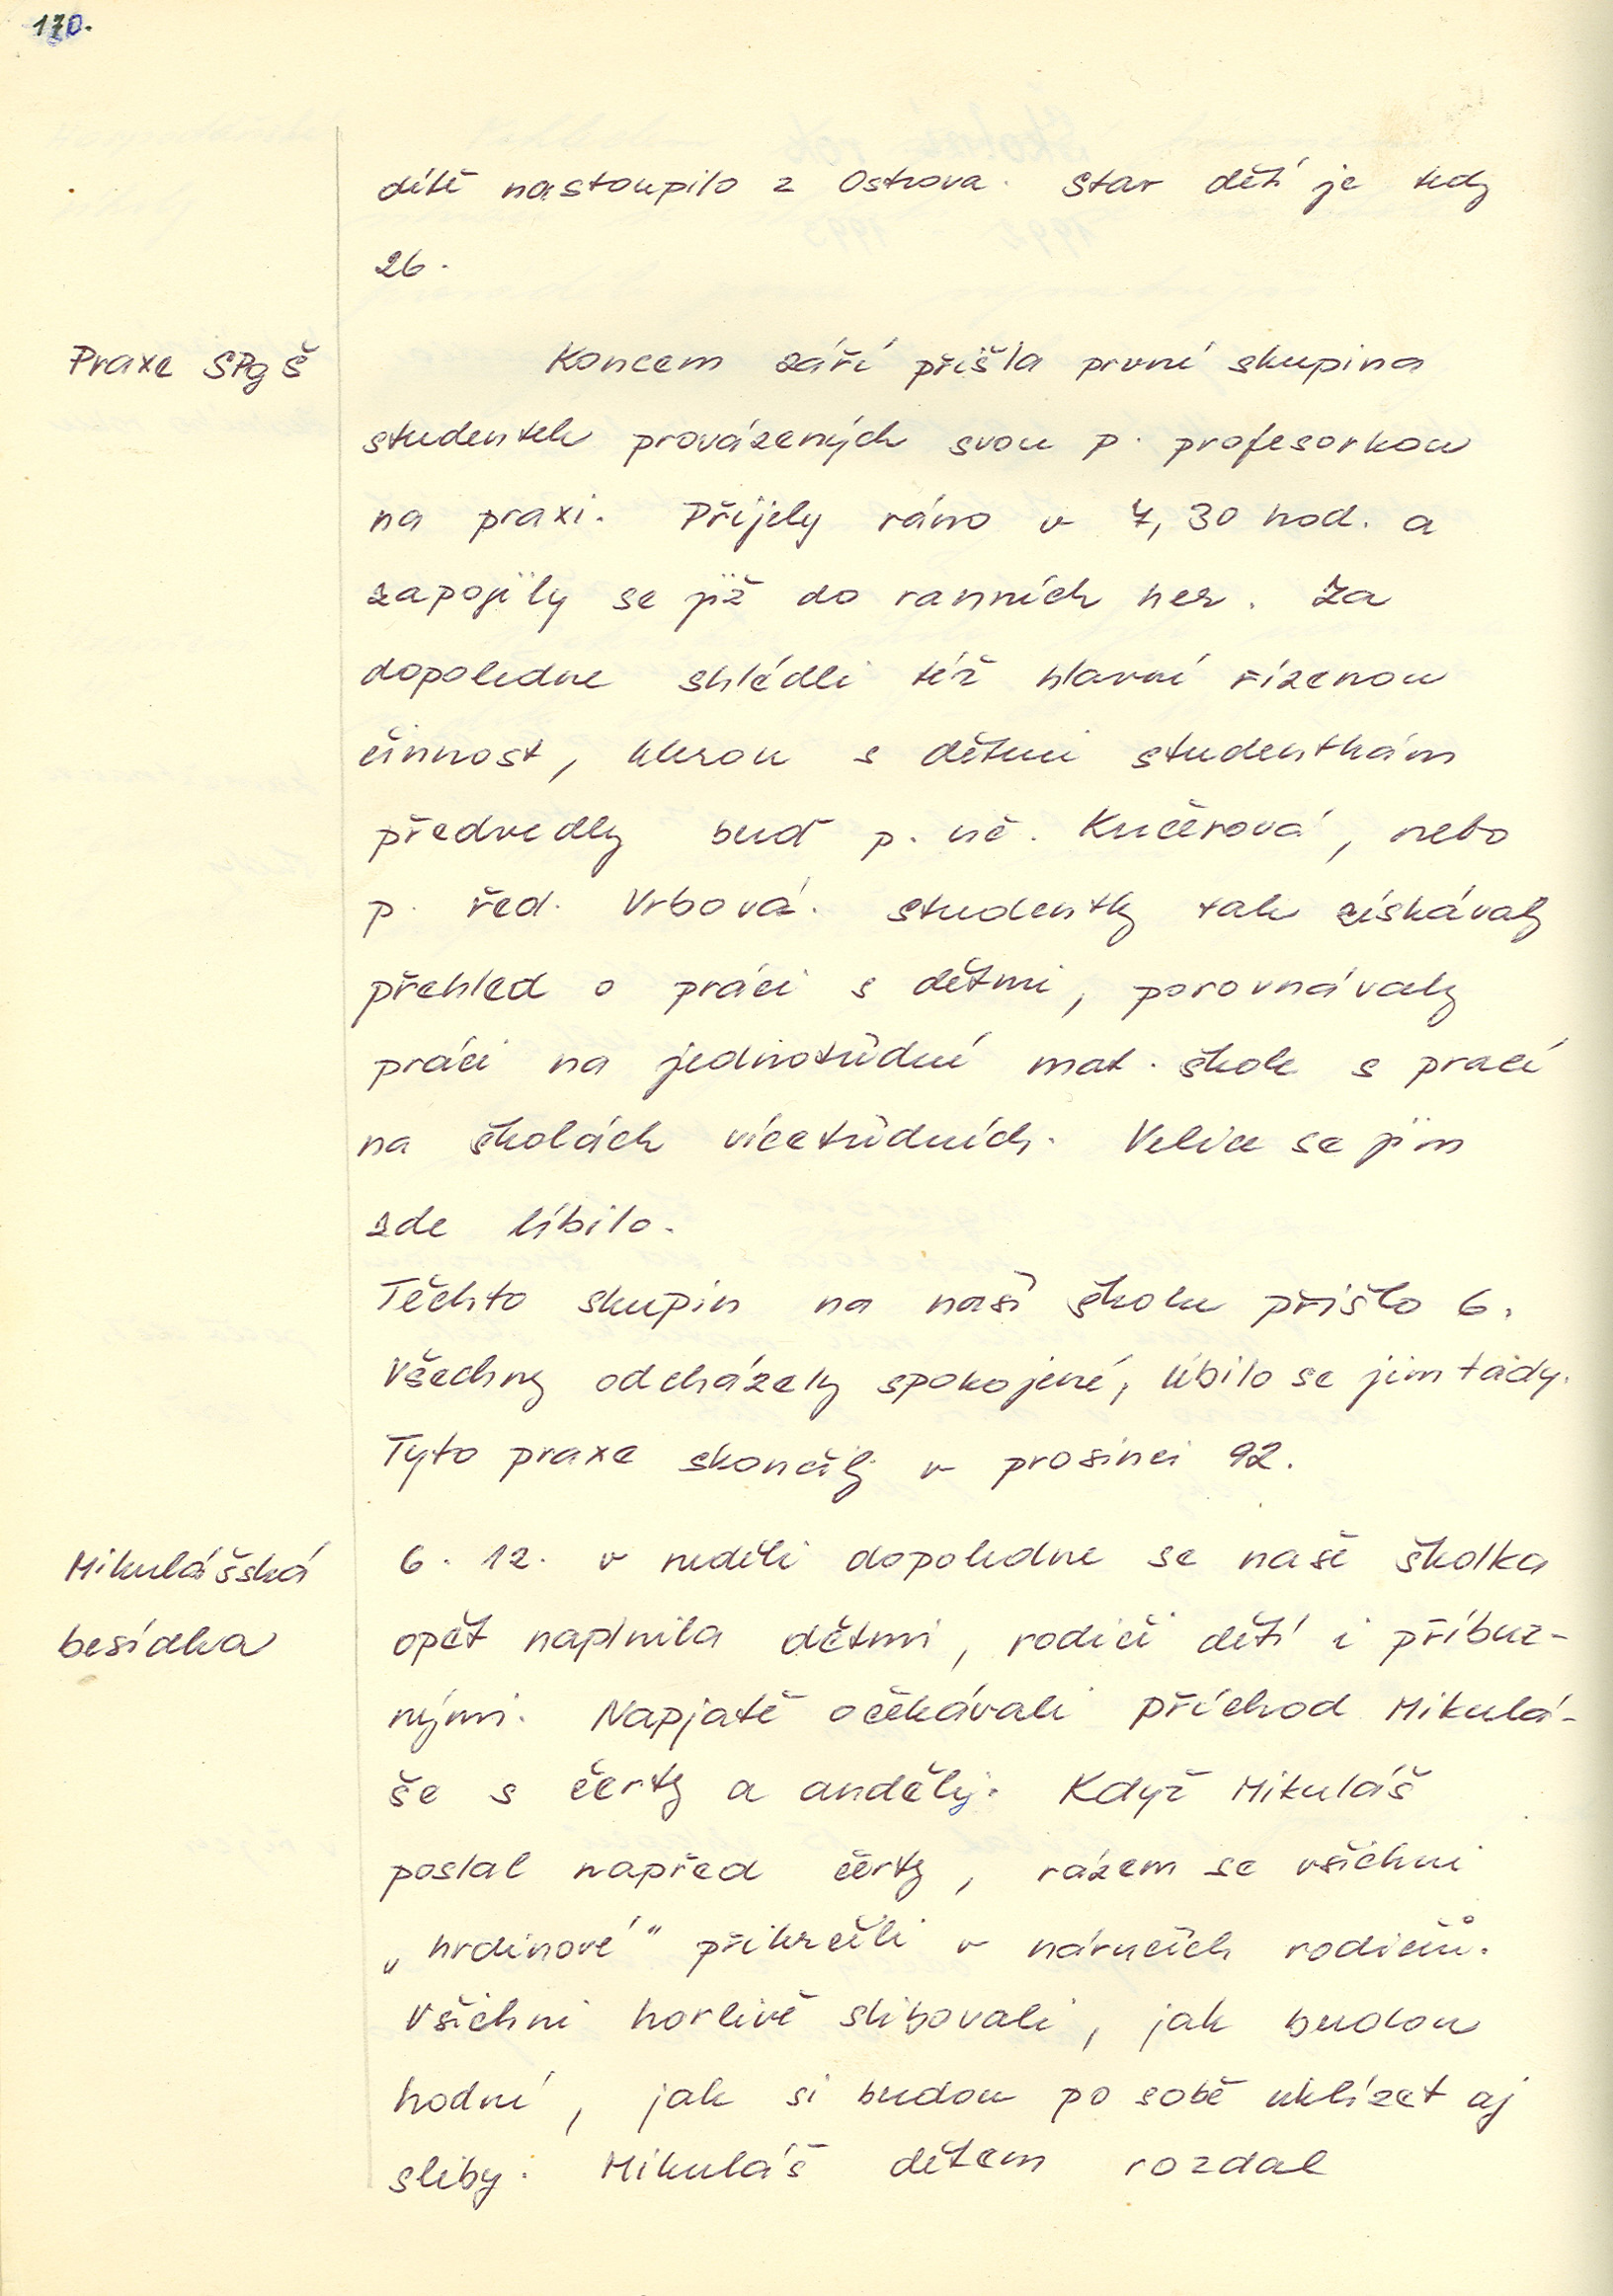 170.
dítě nastoupilo z Ostrova. Stav dětí je tedy
26.
Praxe SPgŠ
Koncem září přišla první skupina
studentek provázených svou p. profesorkou
na praxi. Přijely ráno v 7,30 hod. a
zapojily se již do ranních her. Za
dopoledne shlédli též hlavní řízenou
činnost, kterou s dětmi studentkám
předvedly buď p. uč. Kučerová, nebo
p. řed. Vrbová. Studentky tak získávaly
přehled o práci s dětmi, porovnávaly
práci na jednotřídní mat. škole s prací
na školách vícetřídních. Velice se jim
zde líbilo.
Těchto skupin na naší školu přišlo 6.
Všechny odcházely spokojené, líbilo se jim tady.
Tyto praxe skončily v prosinci 92.
Mikulášská
besídka
6. 12. v neděli dopoledne se naše školka
opět naplnila dětmi, rodiči dětí i příbuz-
nými. Napjatě očekávali příchod Mikulá-
še s čerty a anděly. Když Mikuláš
poslal napřed čerty, rázem se všichni
„hrdinové" přikrčili v náručích rodičů.
Všichni horlivě slibovali, jak budou
hodní, jak si budou po sobě uklízet aj
sliby. Mikuláš dětem rozdal